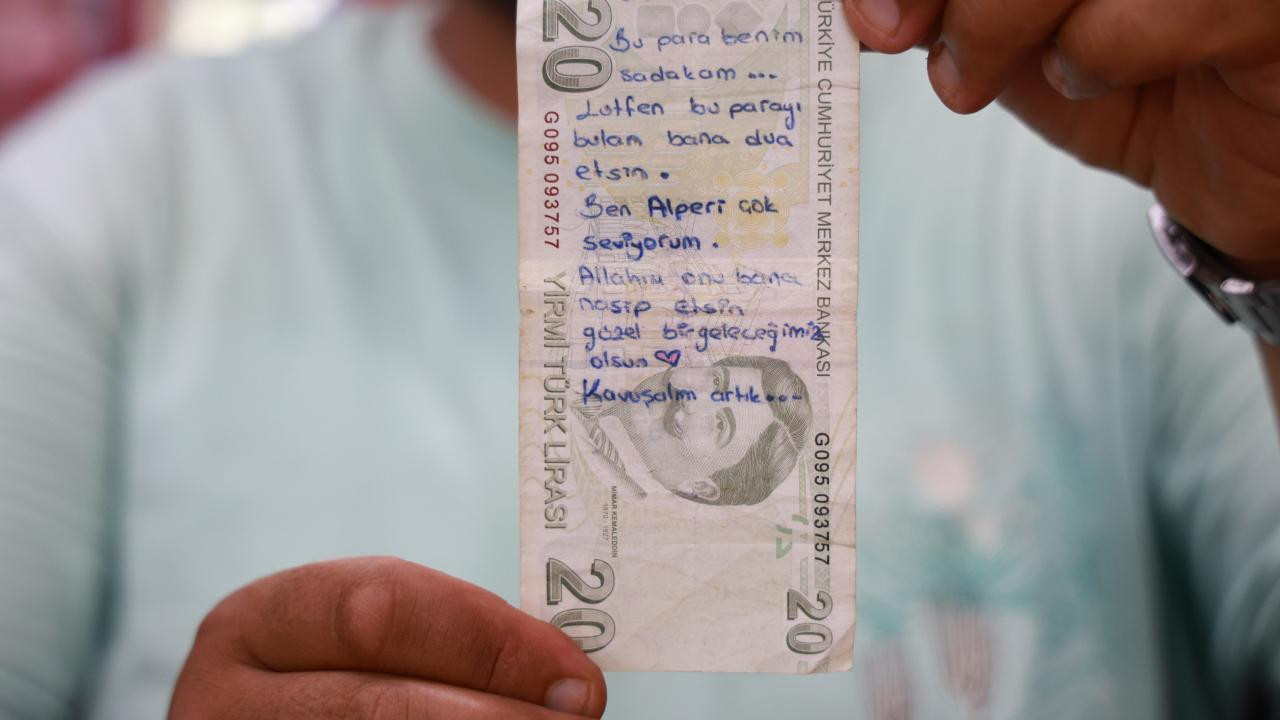 Bu para benim
sadakam ...
Lutfen bu parayı
bulan bana dua
etsin .
Ben Alperi çok
seviyorum .
Allahım onu bana
nasip etsin
güzel bir geleceğimiz
olsun
Kavuşalım artık...
20
G095 093757
YİRMİ TÜRK LİRASI
20
TÜRKİYE CUMHURİYET MERKEZ BANKASI
G095 093757
20
MİMAR KEMALEDDİN
1870 - 1927